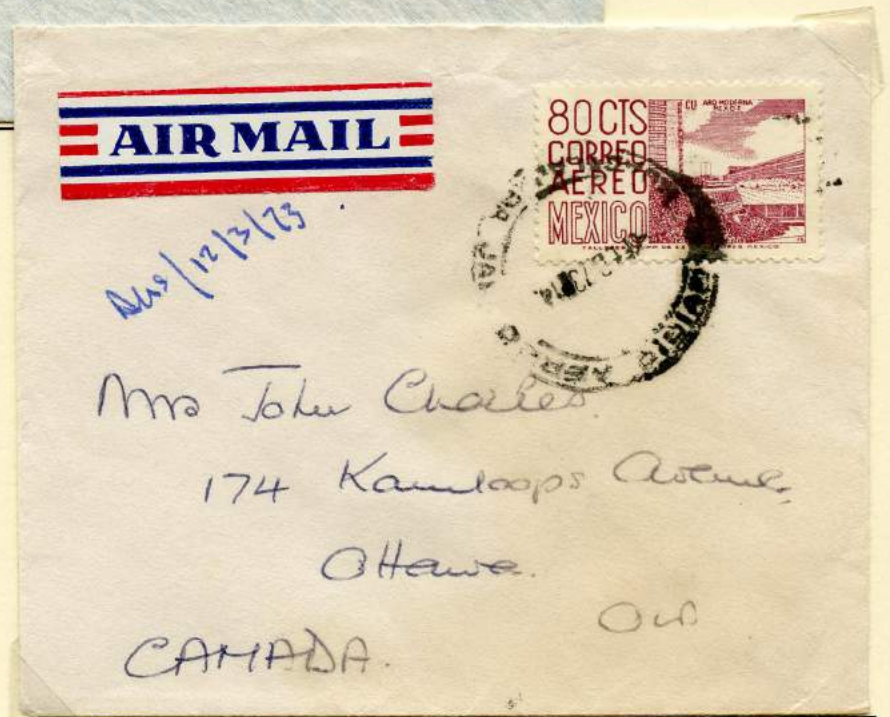 AIR MAIL
80 CTS
CORREO
AEREO
MEXICO
CU ARQ MODERNA
MEXICO D F
FEB 73
SERVICIO AEREO
Ans/12/3/73
Mrs John Charles
174 Kamloops Avenue
Ottawa.
Ont
CANADA.